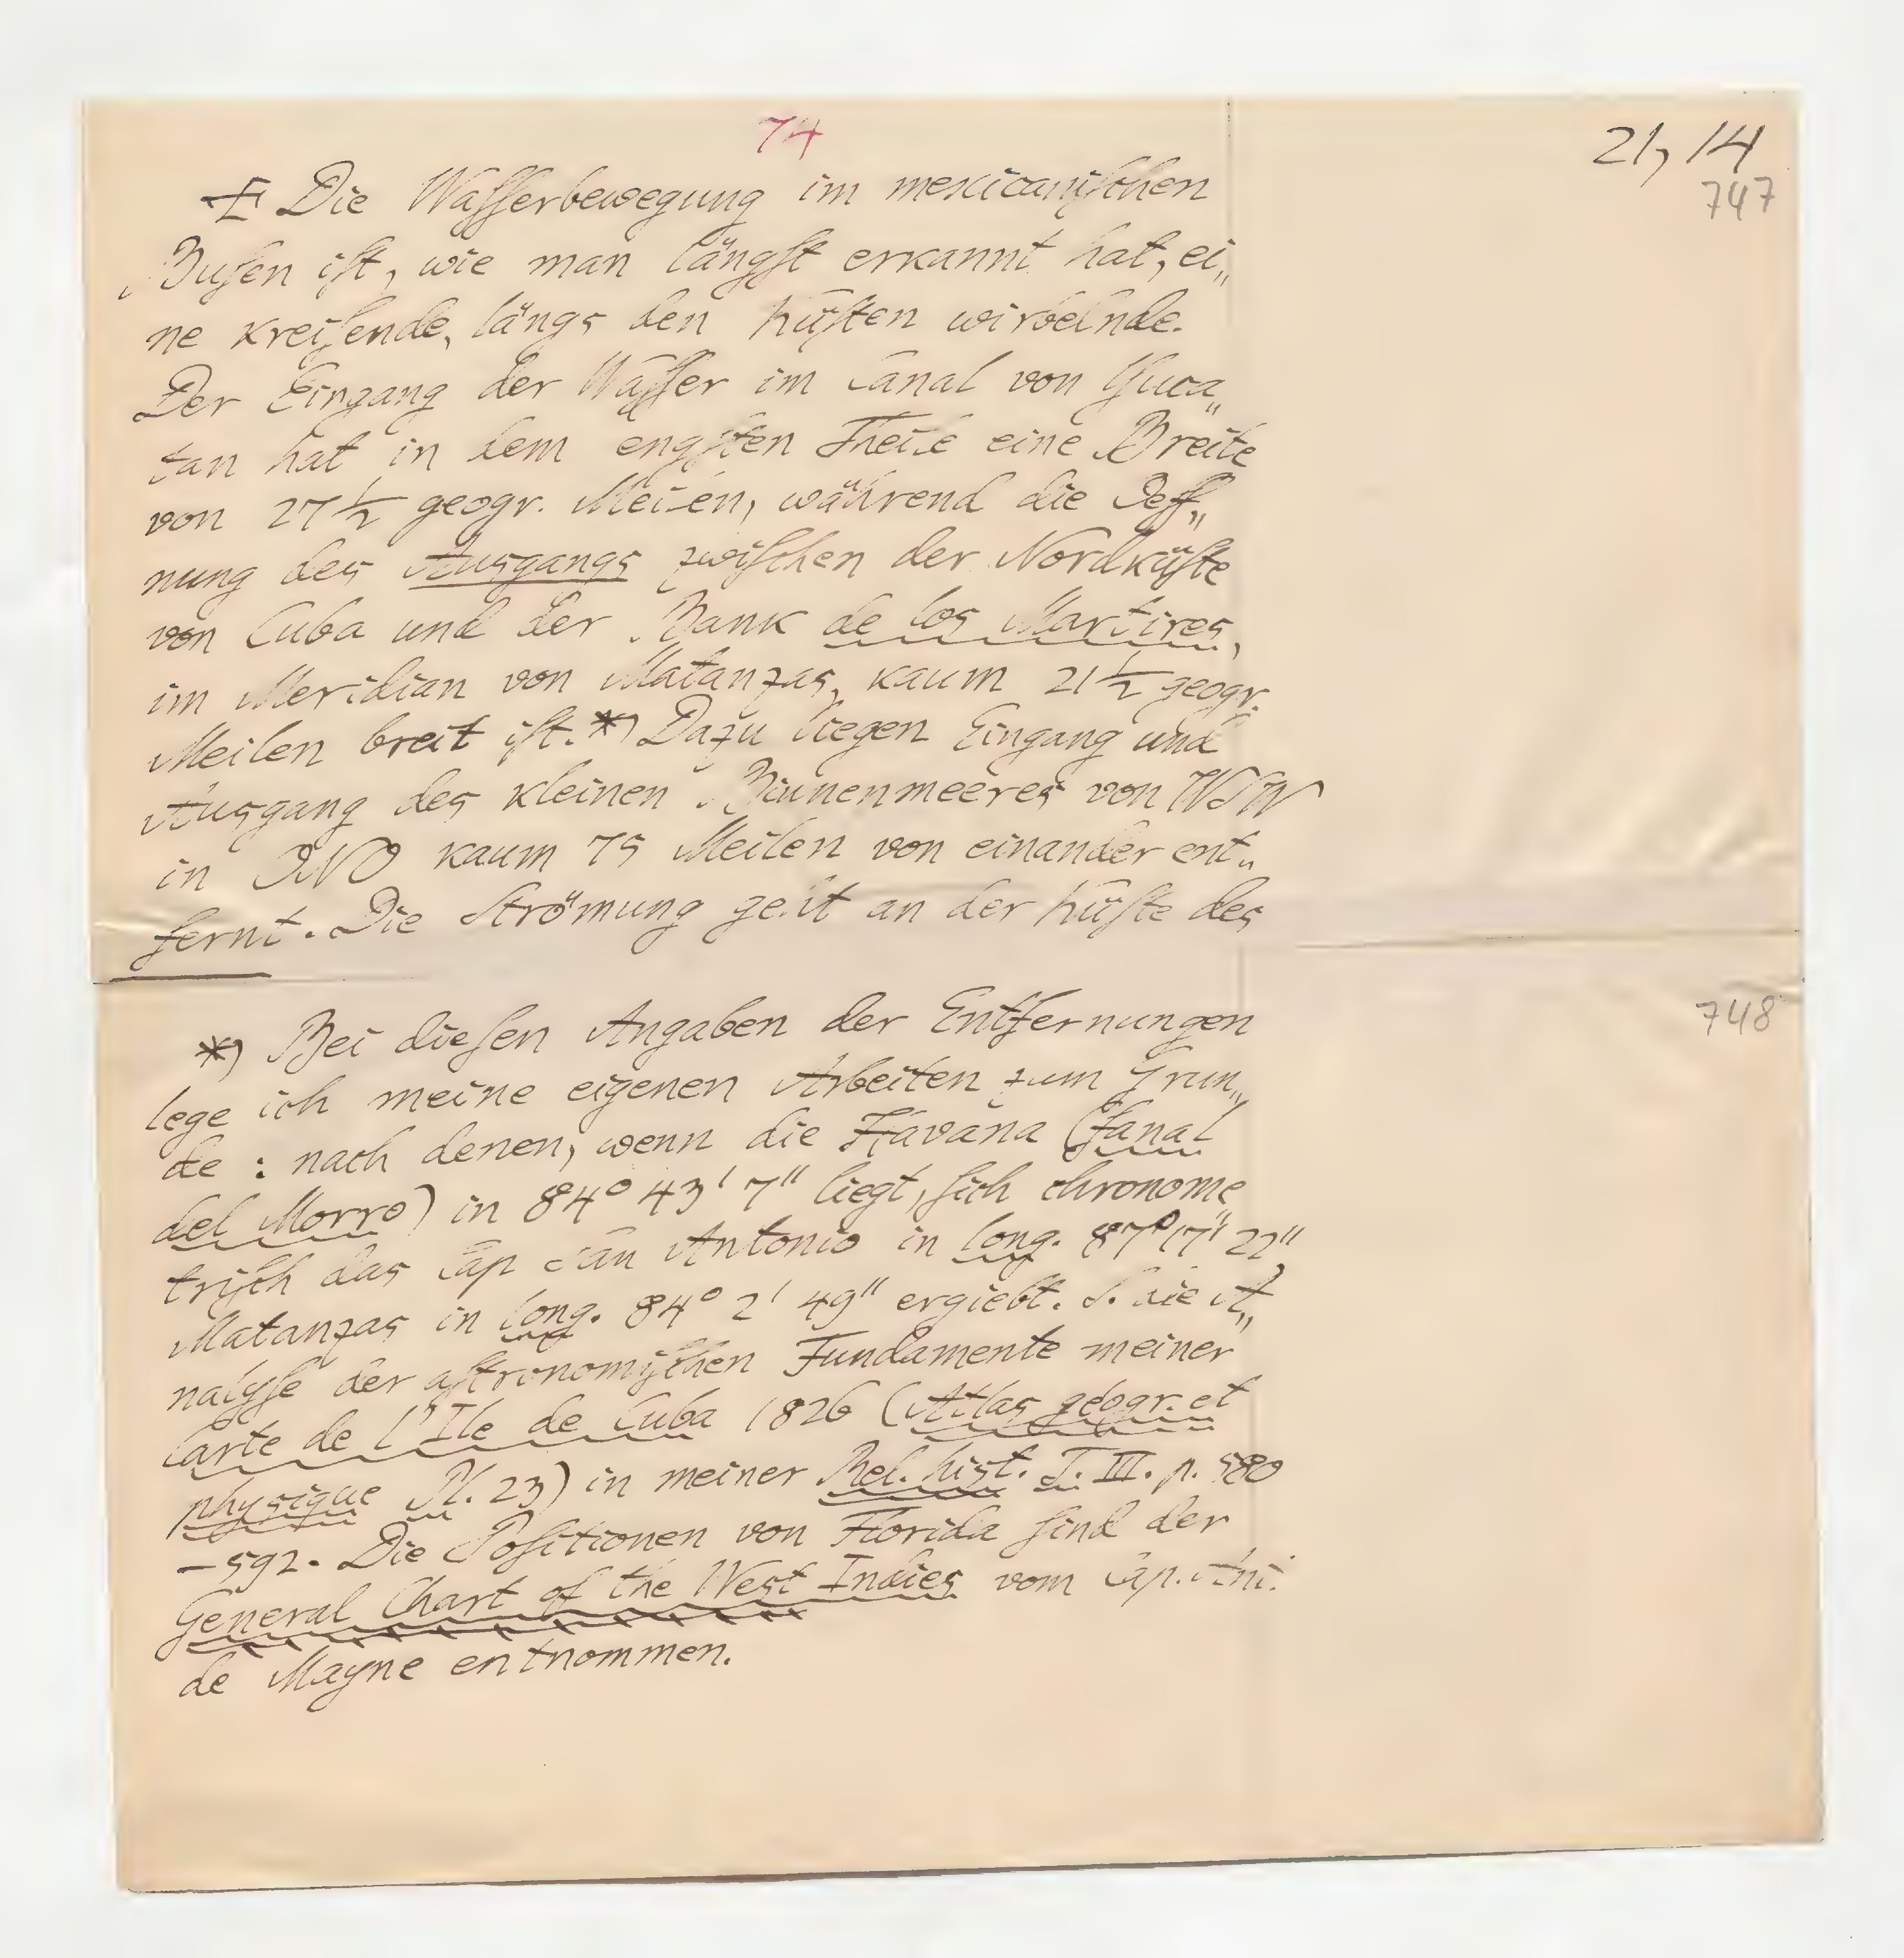 74
21, 14
747
Die Waſſerbewegung im mexicaniſchen
Buſen iſt, wie man längſt erkannt hat, ei„
ne kreiſende, längs den Küſten wirbelnde.
Der Eingang der Waſſer im Canal von Yuca„
tan hat in dem engſten Theile eine Breite
von 27 1/2 geogr. Meilen, während die Oeff„
nung des Ausgangs zwiſchen der Nordküſte
von Cuba und der Bank de los Martires,
im Meridian von Matanzas, kaum 21 1/2 geogr.
Meilen breit iſt.*) Dazu liegen Eingang und
Ausgang des kleinen Binnenmeeres von WSW
in ONO kaum 75 Meilen von einander ent„
fernt. Die Strömung geht an der Küſte des
748
*) Bei dieſen Angaben der Entfernungen
lege ich meine eigenen Arbeiten zum Grun„
de: nach denen, wenn die Havana (fanal
del Morro) in 84° 43' 7" liegt, ſich chronome„
triſch das Cap San Antonio in long. 87° 17' 22",
Matanzas in long. 84° 2' 49" ergiebt. S. die A„
nalyſe der aſtronomiſchen Fundamente meiner
Carte de l'Ile de Cuba 1826 (Atlas géogr. et
physique Pl. 23) in meiner Rel. hist. T. III. p. 580
–592. Die Poſitionen von Florida ſind der
General Chart of the West Indies vom Cap. Ani.
de Mayne entnommen.